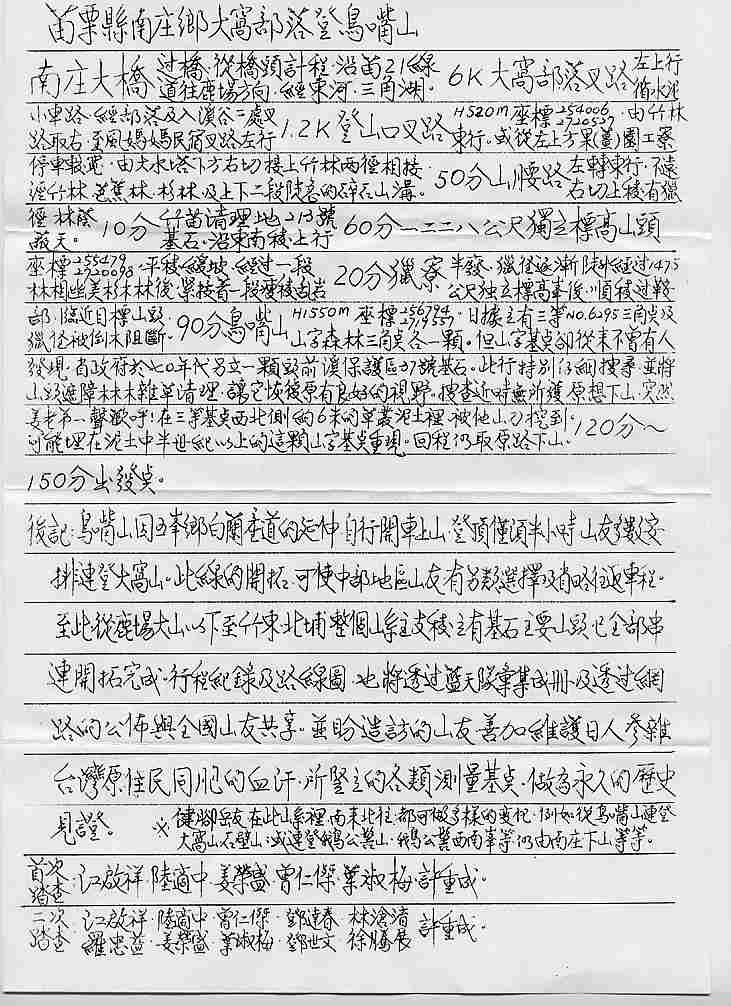 苗栗縣南庄鄉大窩部落登鳥嘴山
南庄大橋 過橋、從橋頭計程、沿苗21線道往鹿場方向、經東河、三角湖。 6K 大窩部落叉路 左上行循水泥
小車路、經部落及入溪谷二處叉路取右、至風媽媽民宿叉路左行 1.2K 登山口叉路 H520m 座標 254006 2720527、由竹林東行。或從左上方果(薑)園工寮
停車較寬、由大水塔下方右切接上竹林兩徑相接、經竹林、芭蕉林、杉林、及上下二段陡急的碎石山溝。 50分山腰路 左轉東行、不遠右切上稜有獵
徑林蔭蔽天。 10分 竹苗清理地213號基石、沿東南稜上行 60分 一二二八公尺獨立標高山頭
座標 255479 2720098、平稜緩坡、經過一段林相幽美杉木林後、緊接着一段瘦稜亂岩 20分獵寮 半發、獵徑逐漸陡升經過1475公尺獨立標高峯後、順稜過鞍
部、臨近目標山頭、獵徑被倒木阻斷。 90分鳥嘴山 H1550m 座標 256794 2719551、日據立有三等NO.6295三角点及山字森林三角点各一顆。但山字基点卻從來不曾有人
發現、省政府於七0年代另立一顆 前溪保護區37號基石。此行特別仔細搜尋、並將
山頭遮障林木雜草清理、讓它恢復原有良好的視野。搜查近時無所獲、原想下山、突然
姜老弟一聲歡呼!在三等基点西北側約6米的草叢泥土裡、被他山刀挖到。
可能埋在泥土中半世紀以上的這顆山字基点重現。回程仍取原路下山。 120分~
150分出發点。
後記:鳥嘴山因五峯鄉白蘭產道的延伸、自行開車上山、登頂僅須半小時、山友多數安
排連登大窩山。此線的開拓、可使中部地區山友有另類選擇及省略往返車程。
至此從鹿場大山以下至竹東北埔整個山系主支稜、立有基石主要山頭已全部串
連開拓完成、行程紀錄及路線圖、也將透過藍天隊彙集成冊、及透過網
路的公佈與全國山友共享。並盼造訪的山友善加維護日人參雜
台灣原住民同胞的血汗、所豎立的各類測量基点、做為永久的歷史
見證。 ※ 健腳岳友在此山系裡南來北往、都可做多樣的變化、例如從鳥嘴山連登
大窩山、石壁山、或連登鵝公髻山、鵝公髻西南峯等仍由南庄下山等等。
首次踏查:江啟祥、陸適中、姜榮盛、曾仁傑、葉淑梅、許重成。
二次踏查:江啟祥、陸適中、曾仁傑、鄧達春、林滄清
羅忠益、姜榮盛、葉淑梅、鄧世文、徐騰展、許重成。